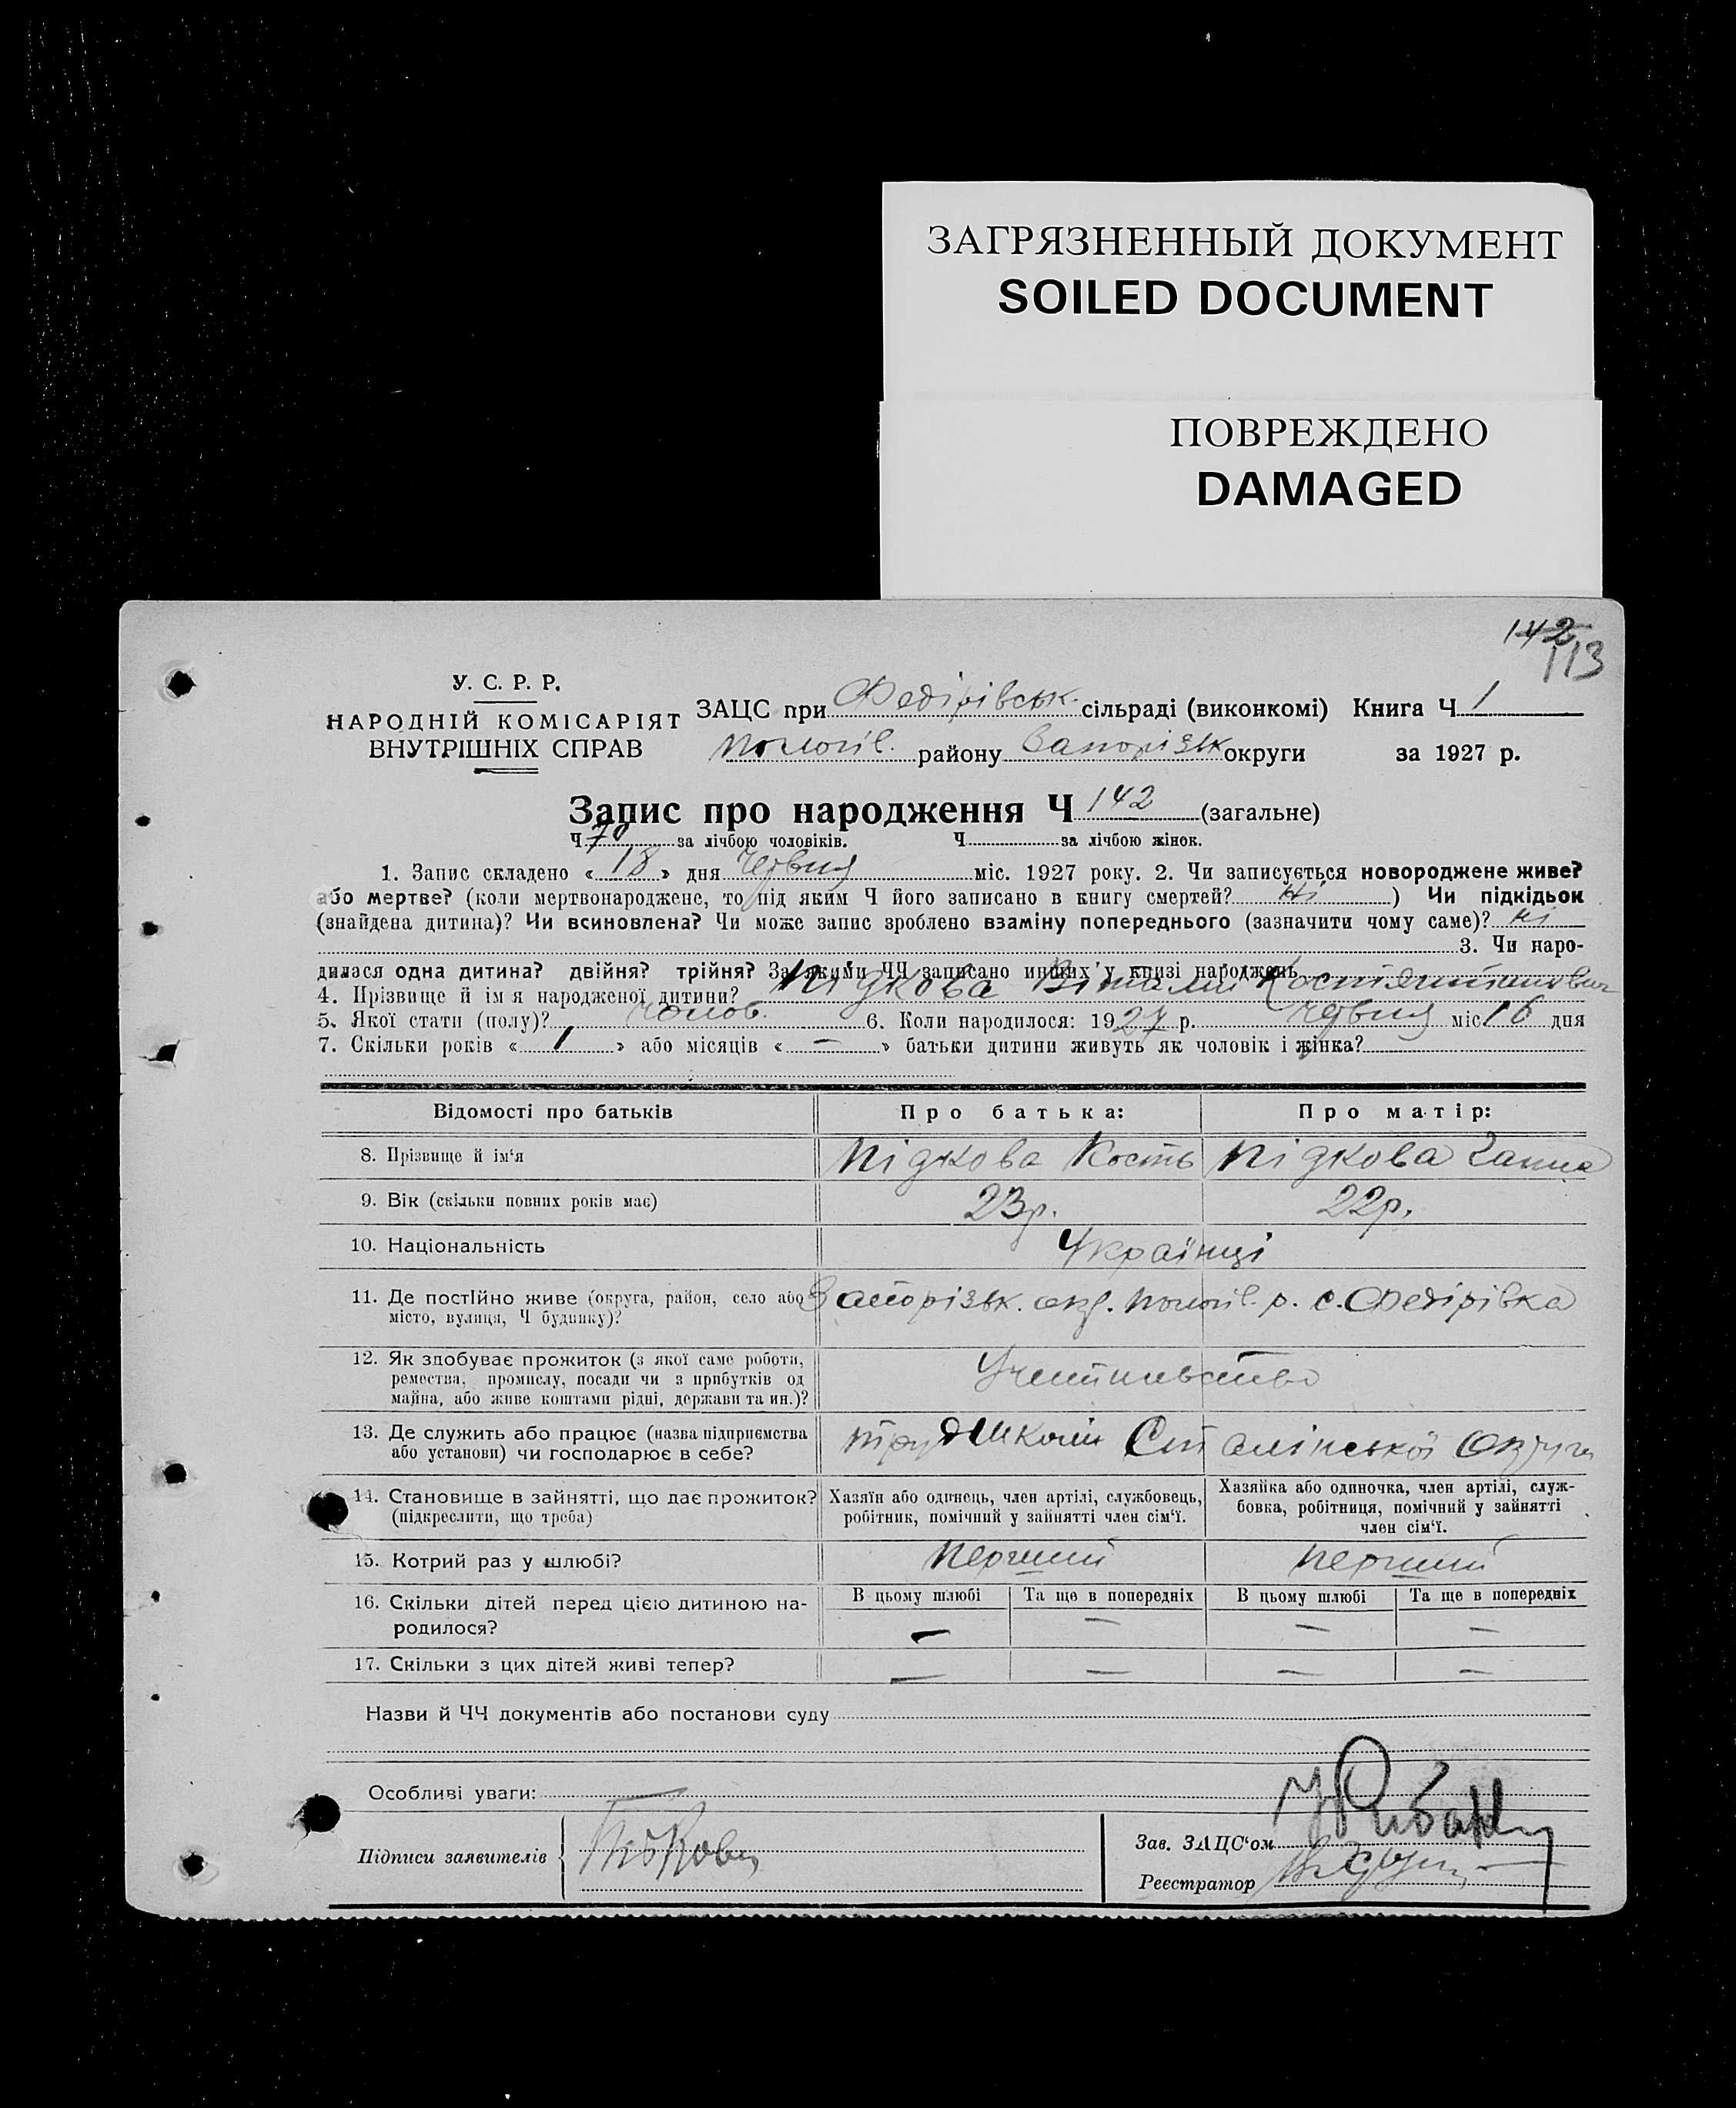 ЗАГРЯЗНЕННЫЙ ДОКУМЕНТ
SOILED DOCUMENT
ПОВРЕЖДЕНО
DAMAGED
142
113
У. С. Р. Р.
НАРОДНІЙ КОМІСАРІЯТ
ВНУТРІШНІХ СПРАВ
ЗАЦС при Федірівськ. сільраді (виконкомі) Книга Ч 1
Пологів. району Запорізьк округи за 1927 р.
Запис про народження Ч 142 (загальне)
Ч 70 за лічбою чоловіків. Ч за лічбою жінок.
1. Запис складено « 18 » дня Червня міс. 1927 року. 2. Чи записується новороджене живе?
або мертве? (коли мертвонароджене, то під яким Ч його записано в книгу смертей? ні ) Чи підкідьок
(знайдена дитина)? Чи всиновлена? Чи може запис зроблено взаміну попереднього (зазначити чому саме)? ні
3. Чи наро-
дилася одна дитина? двійня? трійня? За якими ЧЧ записано инших у книзі народжень
4. Прізвище й ім'я народженої дитини? Підкова Віталій Костянтинович
5. Якої стати (полу)? чолов. 6. Коли народилося: 1927 р. Червня міс 16 дня
7. Скільки років « 1 » або місяців « — » батьки дитини живуть як чоловік і жінка?
Відомості про батьків Про батька: Про матір:
8. Прізвище й ім'я Підкова Кость Підкова Ганна
9. Вік (скільки повних років має) 23р. 22р.
10. Національність Українці
11. Де постійно живе (округа, район, село або Запорізьк. окр. Пологів. р. с. Федірівка
місто, вулиця, Ч будинку)?
12. Як здобуває прожиток (з якої саме роботи, Учительство
ремества, промислу, посади чи з прибутків од
майна, або живе коштами рідні, держави та ин.)?
13. Де служить або працює (назва підприємства трудшколі Сталінської округи
або установи) чи господарює в себе?
14. Становище в зайнятті, що дає прожиток? Хазяїн або одинець, член артілі, службовець, Хазяйка або одиночка, член артілі, служ-
(підкреслити, що треба) робітник, помічний у зайнятті член сім'ї. бовка, робітниця, помічний у зайнятті
член сім'ї.
15. Котрий раз у шлюбі? перший перший
16. Скільки дітей перед цією дитиною на- В цьому шлюбі Та ще в попередніх В цьому шлюбі Та ще в попередніх
родилося? — — — —
17. Скільки з цих дітей живі тепер? — — — —
Назви й ЧЧ документів або постанови суду
Особливі уваги:
Підписи заявителів
Зав. ЗАЦС'ом
Реєстратор